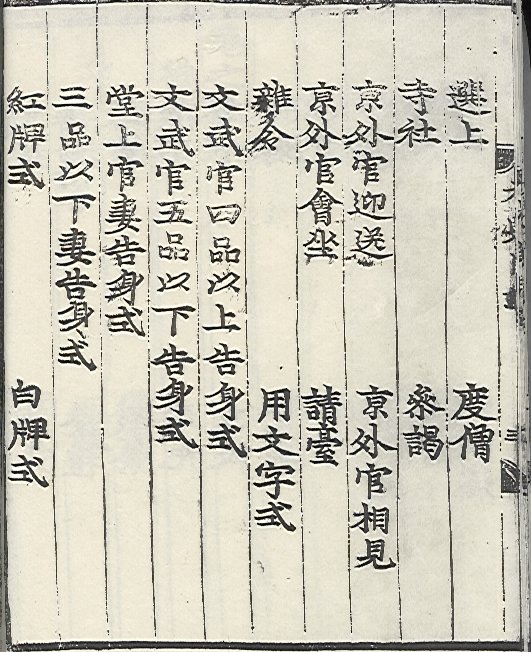 選上　度僧
寺社　叅謁
京外官迎送　京外官相見
京外官會坐　請臺
雜令　用文字式
文武官四品以上告身式
文武官五品以下告身式
堂上官妻告身式
三品以下妻告身式
紅牌式　白牌式